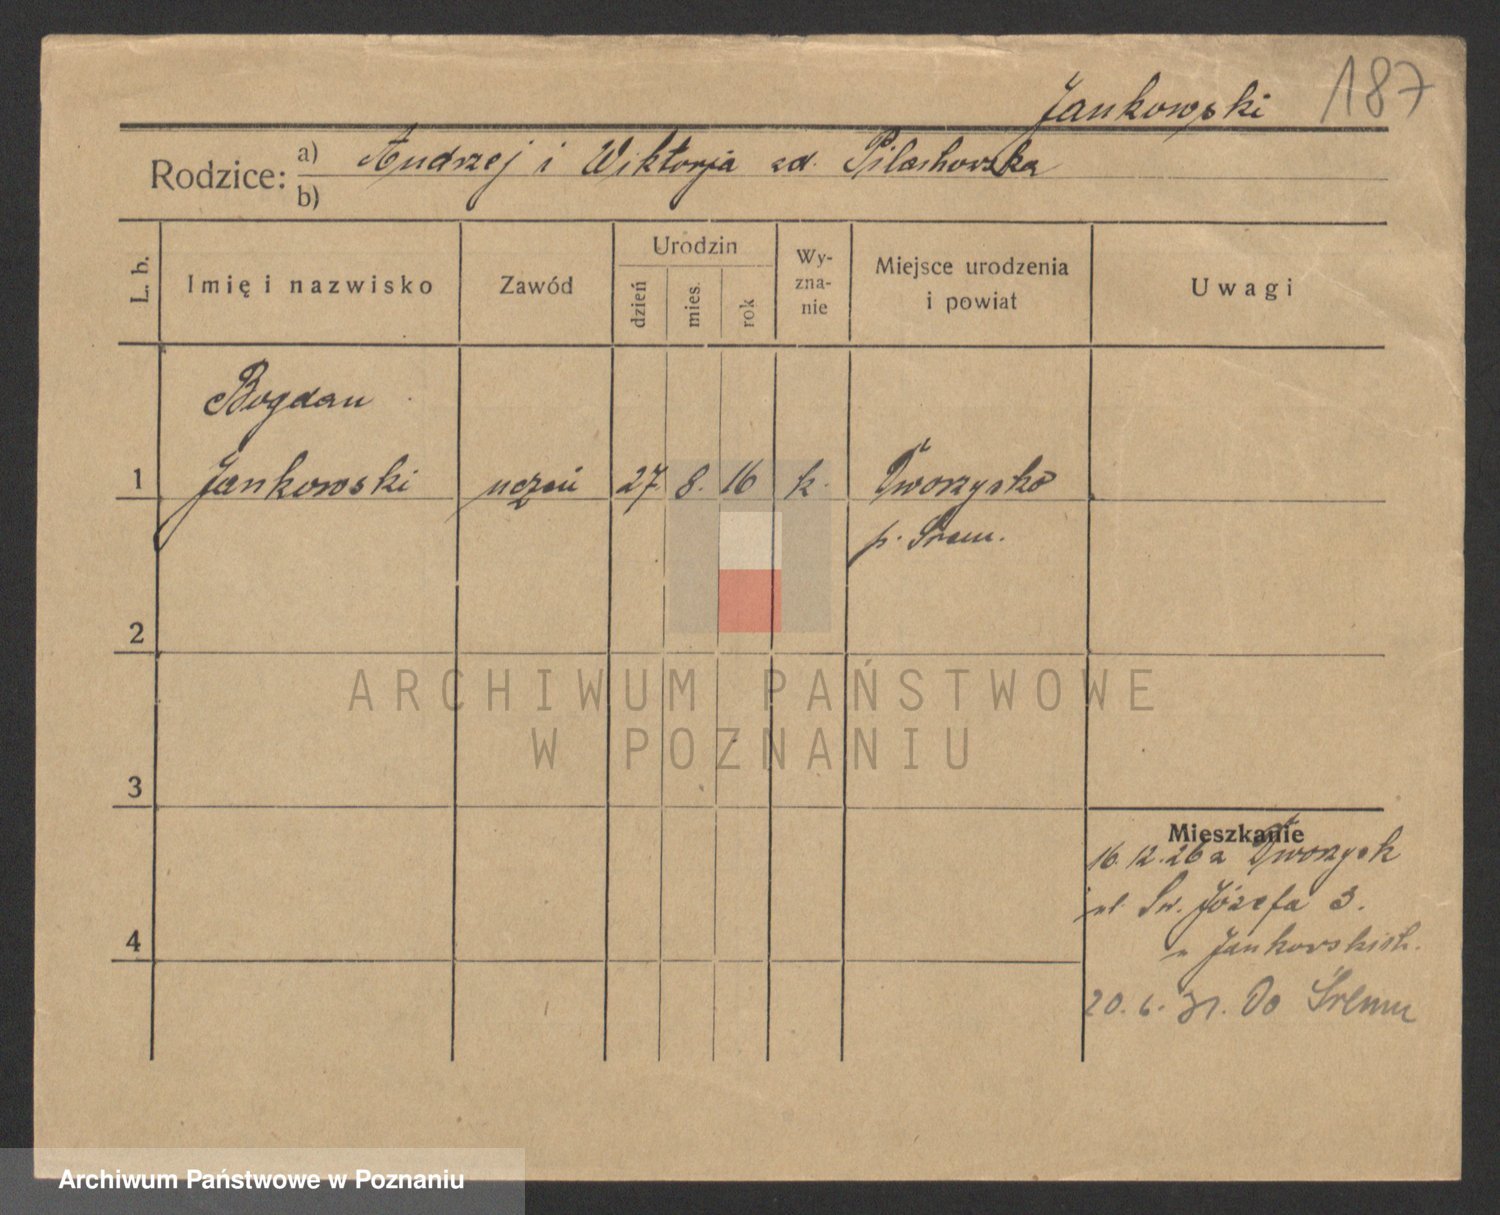 187
Jankowski
Rodzice: a) Andrzej i Wiktorja zd.
b)
L. b. Imię i nazwisko Zawód Urodzin dzień mies. rok Wyznanie Miejsce urodzenia i powiat Uwagi
Bogdan
1 Jankowski uczeń 27. 8. 16 k.
p. Śrem.
2
ARCHIWUM PAŃSTWOWE
W POZNANIU
3
Mieszkanie
16. 12. 26 z
ul. Św. Józefa 3.
u Jankowskich.
4
20. 6. 31. Do Śremu
Archiwum Państwowe w Poznaniu